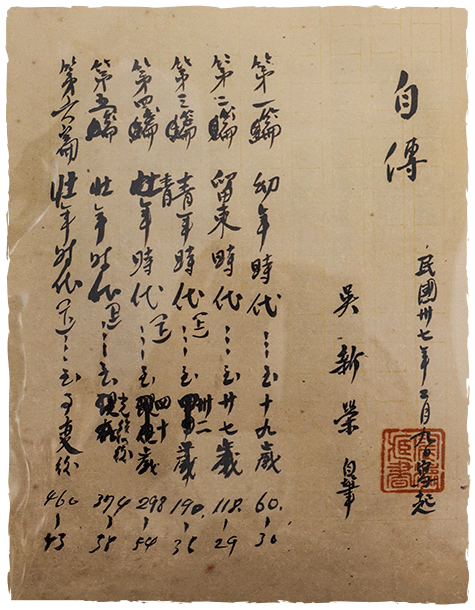 自傳
民國卅七年二月九日寫起
吳新榮 自筆
第一篇 幼年時代……至十九歲 60.
第二篇 留東時代……至廿七歲 118.-29
第三篇 青年時代……至卅二歲 190.-36
第四篇 壯年時代……至四十歲 298-54
第五篇 壯年時代……至光復後 374-38
第六篇 壯年時代……至事變後 460-43